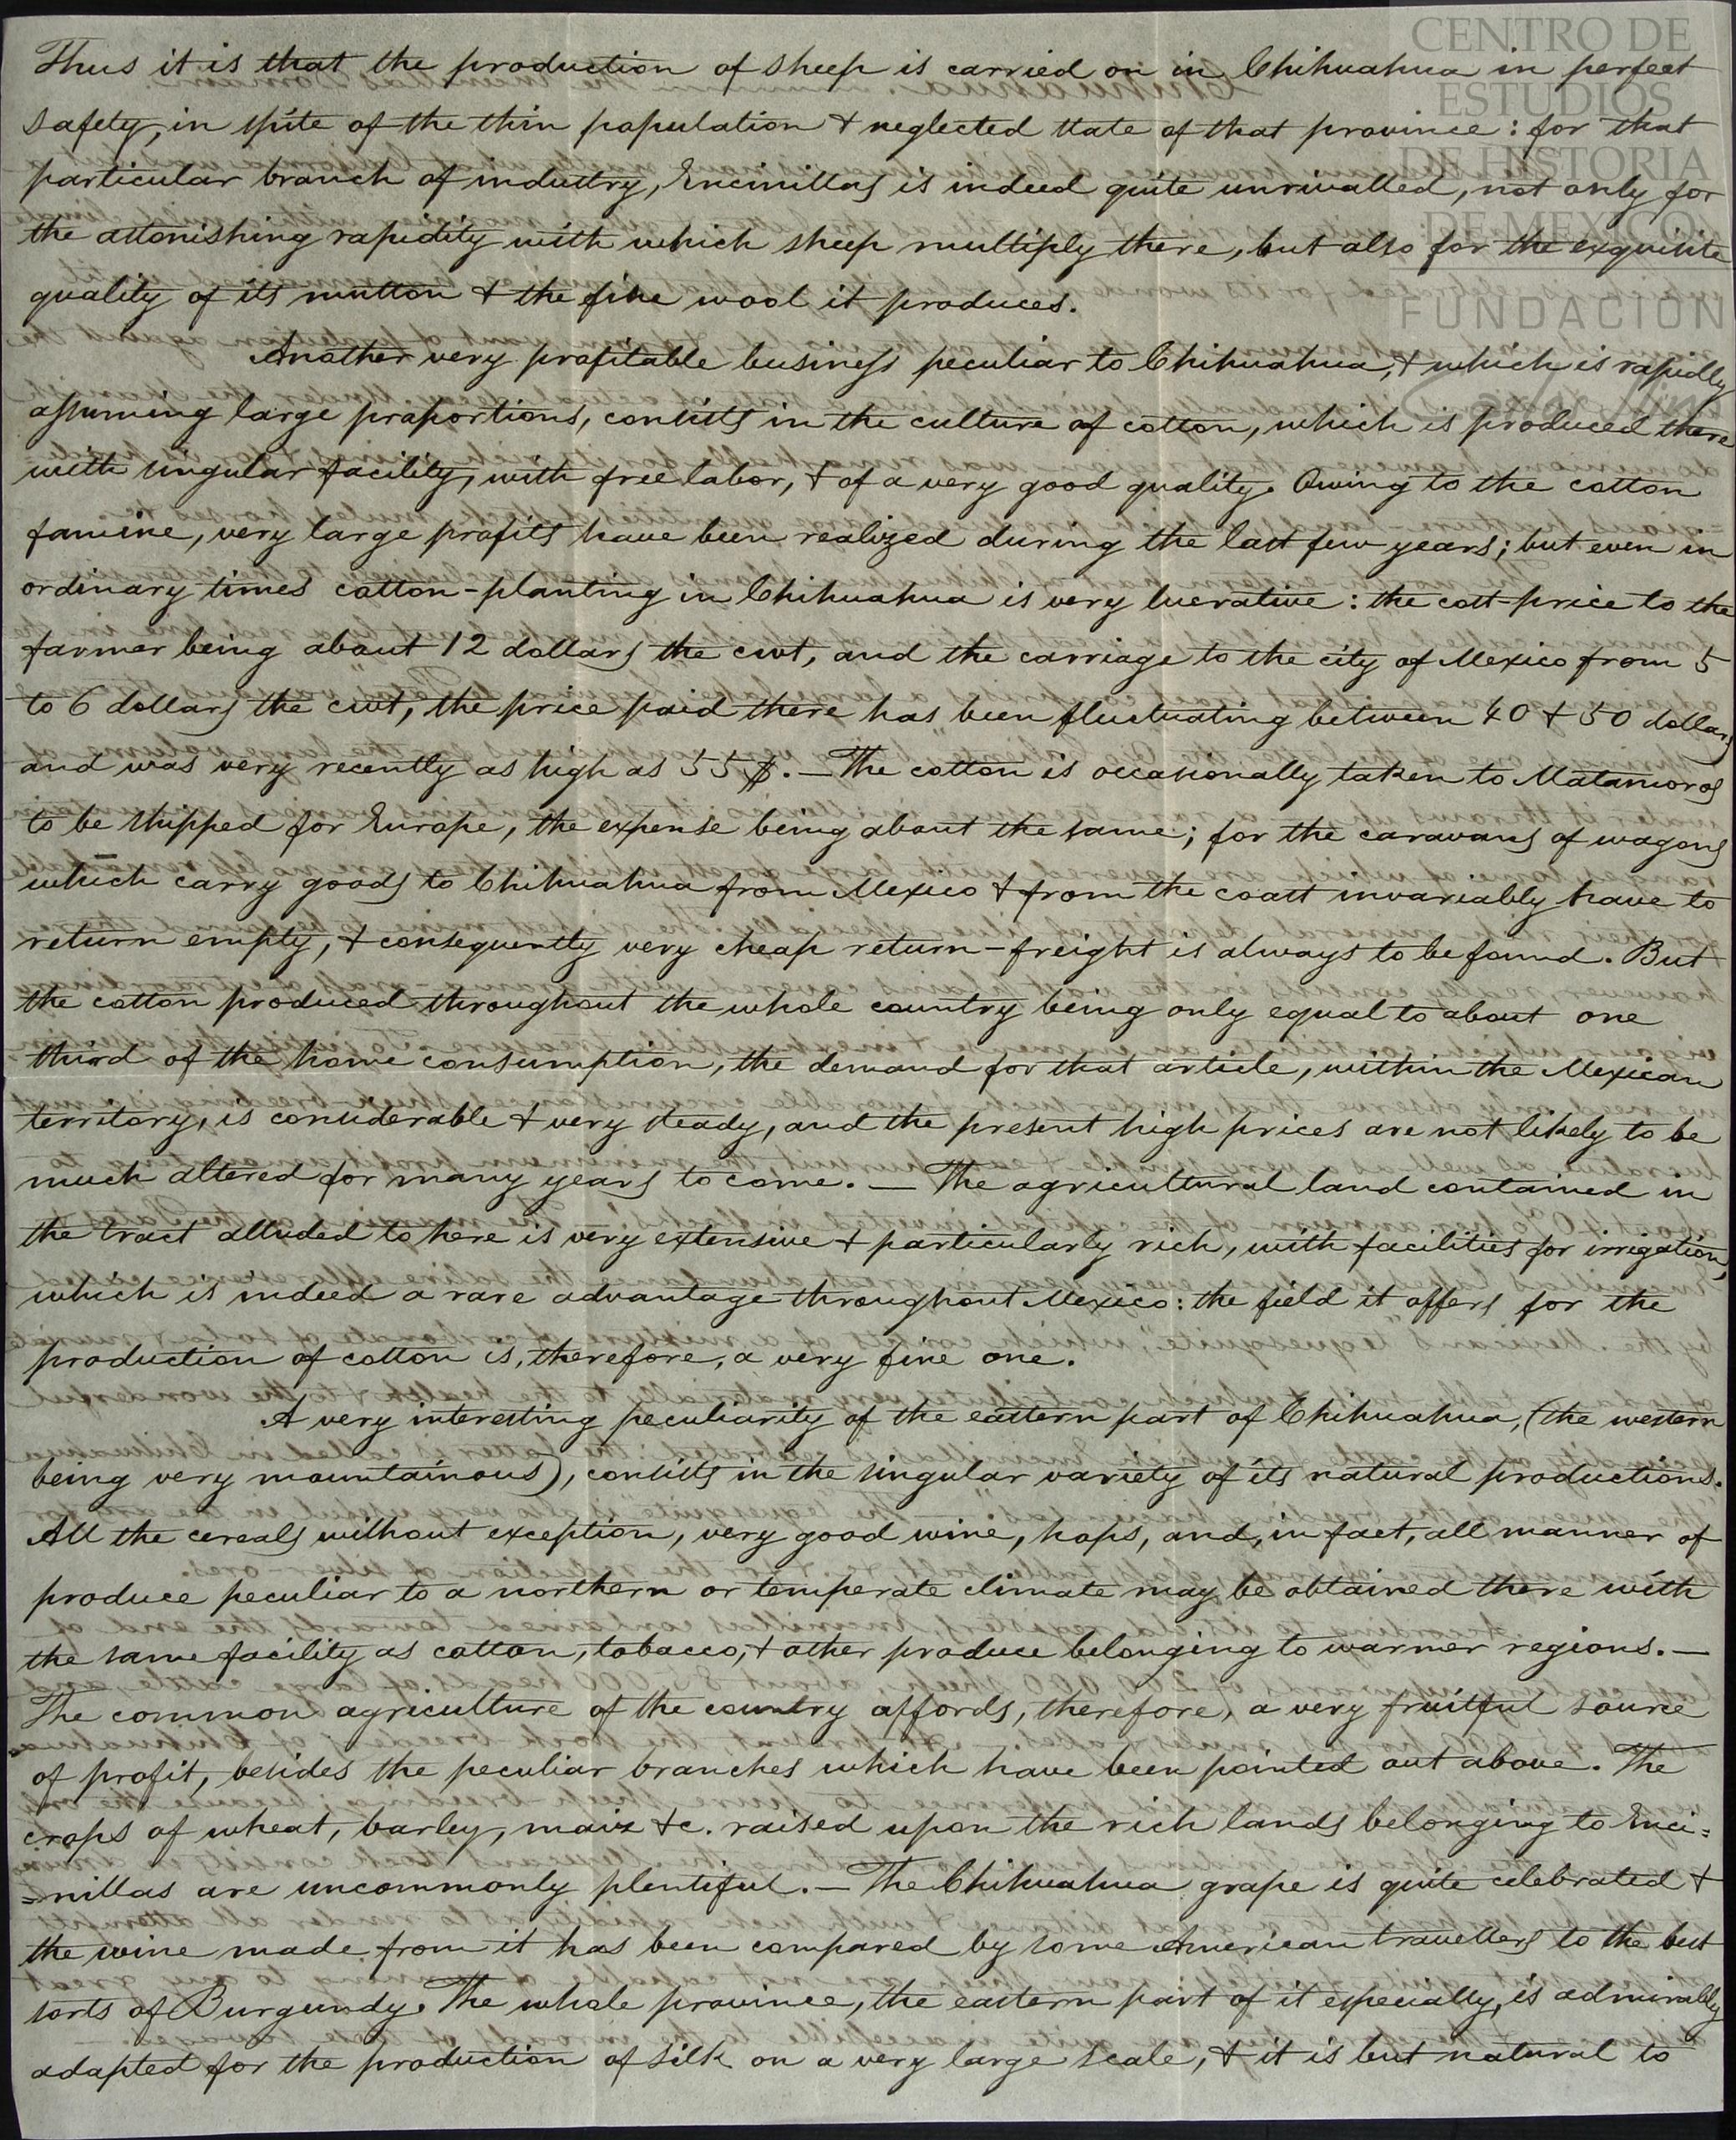 Thus it is that the production of sheep is carried on in Chihuahua in perfect
safety, in spite of the thin population & neglected state of that province: for that
particular branch of industry, Encinillas is indeed quite unrivalled, not only for
the astonishing rapidity with which sheep multiply there, but also for the exquisite
quality of its mutton & the fine wool it produces.
Another very profitable business peculiar to Chihuahua, & which is rapidly
assuming large proportions, consists in the culture of cotton, which is produced there
with singular facility, with free labor, & of a very good quality. Owing to the cotton
famine, very large profits have been realized during the last few years; but even in
ordinary times cotton-planting in Chihuahua is very lucrative: the cost-price to the
farmer being about 12 dollars the cwt, and the carriage to the city of Mexico from 5
to 6 dollars the cwt, the price paid there has been fluctuating between 40 & 50 dollars
and was very recently as high as 55 $. — The cotton is occasionally taken to Matamoros
to be shipped for Europe, the expense being about the same; for the caravans of wagons
which carry goods to Chihuahua from Mexico & from the coast invariably have to
return empty, & consequently very cheap return-freight is always to be found. But
the cotton produced throughout the whole country being only equal to about one
third of the home consumption, the demand for that article, within the Mexican
territory, is considerable & very steady, and the present high prices are not likely to be
much altered for many years to come. — The agricultural land contained in
the tract alluded to here is very extensive & particularly rich, with facilities for irrigation,
which is indeed a rare advantage throughout Mexico: the field it offers for the
production of cotton is, therefore, a very fine one.
A very interesting peculiarity of the eastern part of Chihuahua, (the western
being very mountainous), consists in the singular variety of its natural productions.
All the cereals without exception, very good wine, hops, and, in fact, all manner of
produce peculiar to a northern or temperate climate may be obtained there with
the same facility as cotton, tobacco, & other produce belonging to warmer regions. —
The common agriculture of the country affords, therefore, a very fruitful source
of profit, besides the peculiar branches which have been pointed out above. The
crops of wheat, barley, maiz &c. raised upon the rich lands belonging to Enci=
=nillas are uncommonly plentiful. — The Chihuahua grape is quite celebrated &
the wine made from it has been compared by some American travellers to the best
sorts of Burgundy. The whole province, the eastern part of it especially, is admirably
adapted for the production of silk on a very large scale, & it is but natural to
CENTRO DE
ESTUDIOS
DE HISTORIA
DE MEXICO
FUNDACIÓN
Carlos Slim